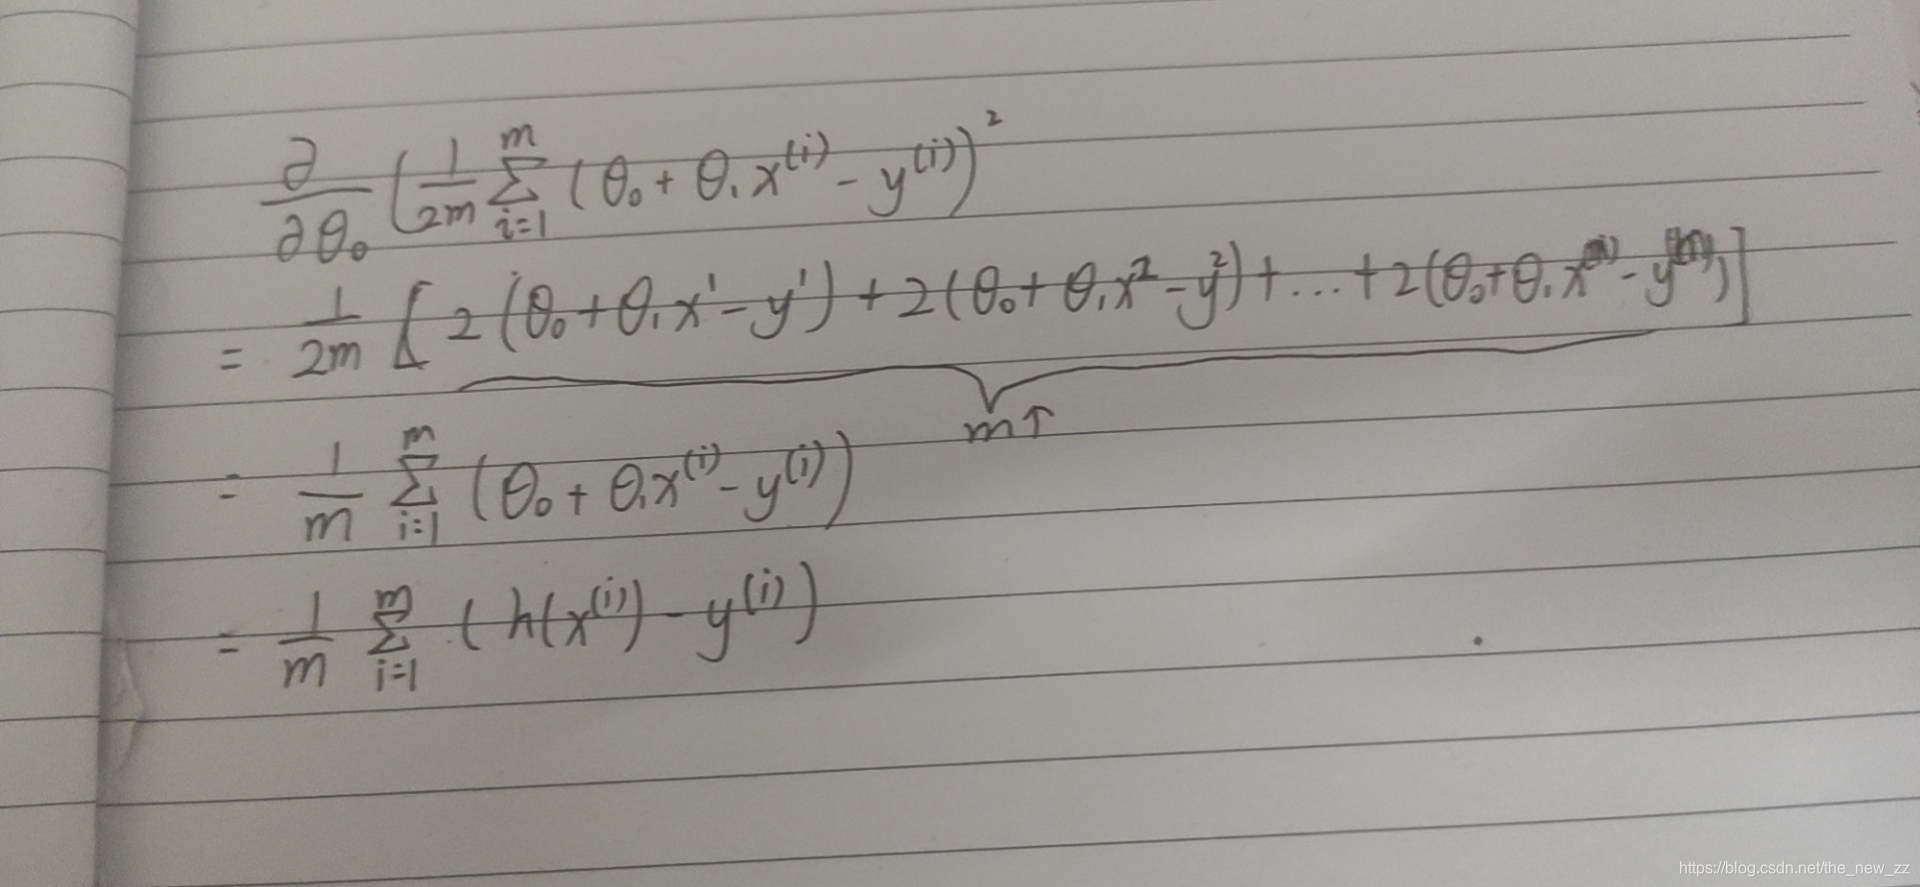 ∂/∂θ₀ (1/2m Σ_{i=1}^{m} (θ₀ + θ₁x^{(i)} - y^{(i)})²
= 1/2m [2(θ₀+θ₁x¹-y¹) + 2(θ₀+θ₁x²-y²) + ... + 2(θ₀+θ₁x^{(m)} - y^{(m)})]
m个
= 1/m Σ_{i=1}^{m} (θ₀ + θ₁x^{(i)} - y^{(i)})
= 1/m Σ_{i=1}^{m} (h(x^{(i)}) - y^{(i)})
https://blog.csdn.net/the_new_zz